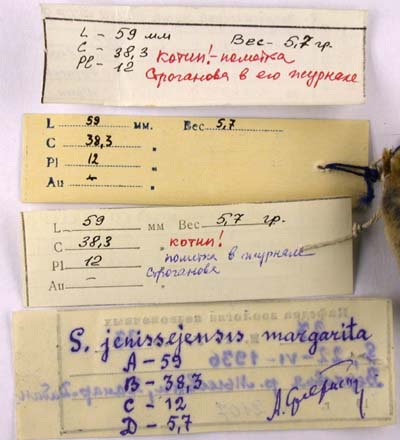 L - 59 мм Вес - 5,7 гр.
C - 38,3 котип! - пометка
Pl - 12 Строганова в его журнале
L 59 мм. Вес 5,7
C 38,3 "
Pl 12 "
Au - "
L 59 мм Вес 5,7 гр.
C 38,3 " котип!
Pl 12 " пометка в журнале
Au - " Строганова
S. jenissejensis margarita
A - 59
B - 38,3
C - 12
D - 5,7